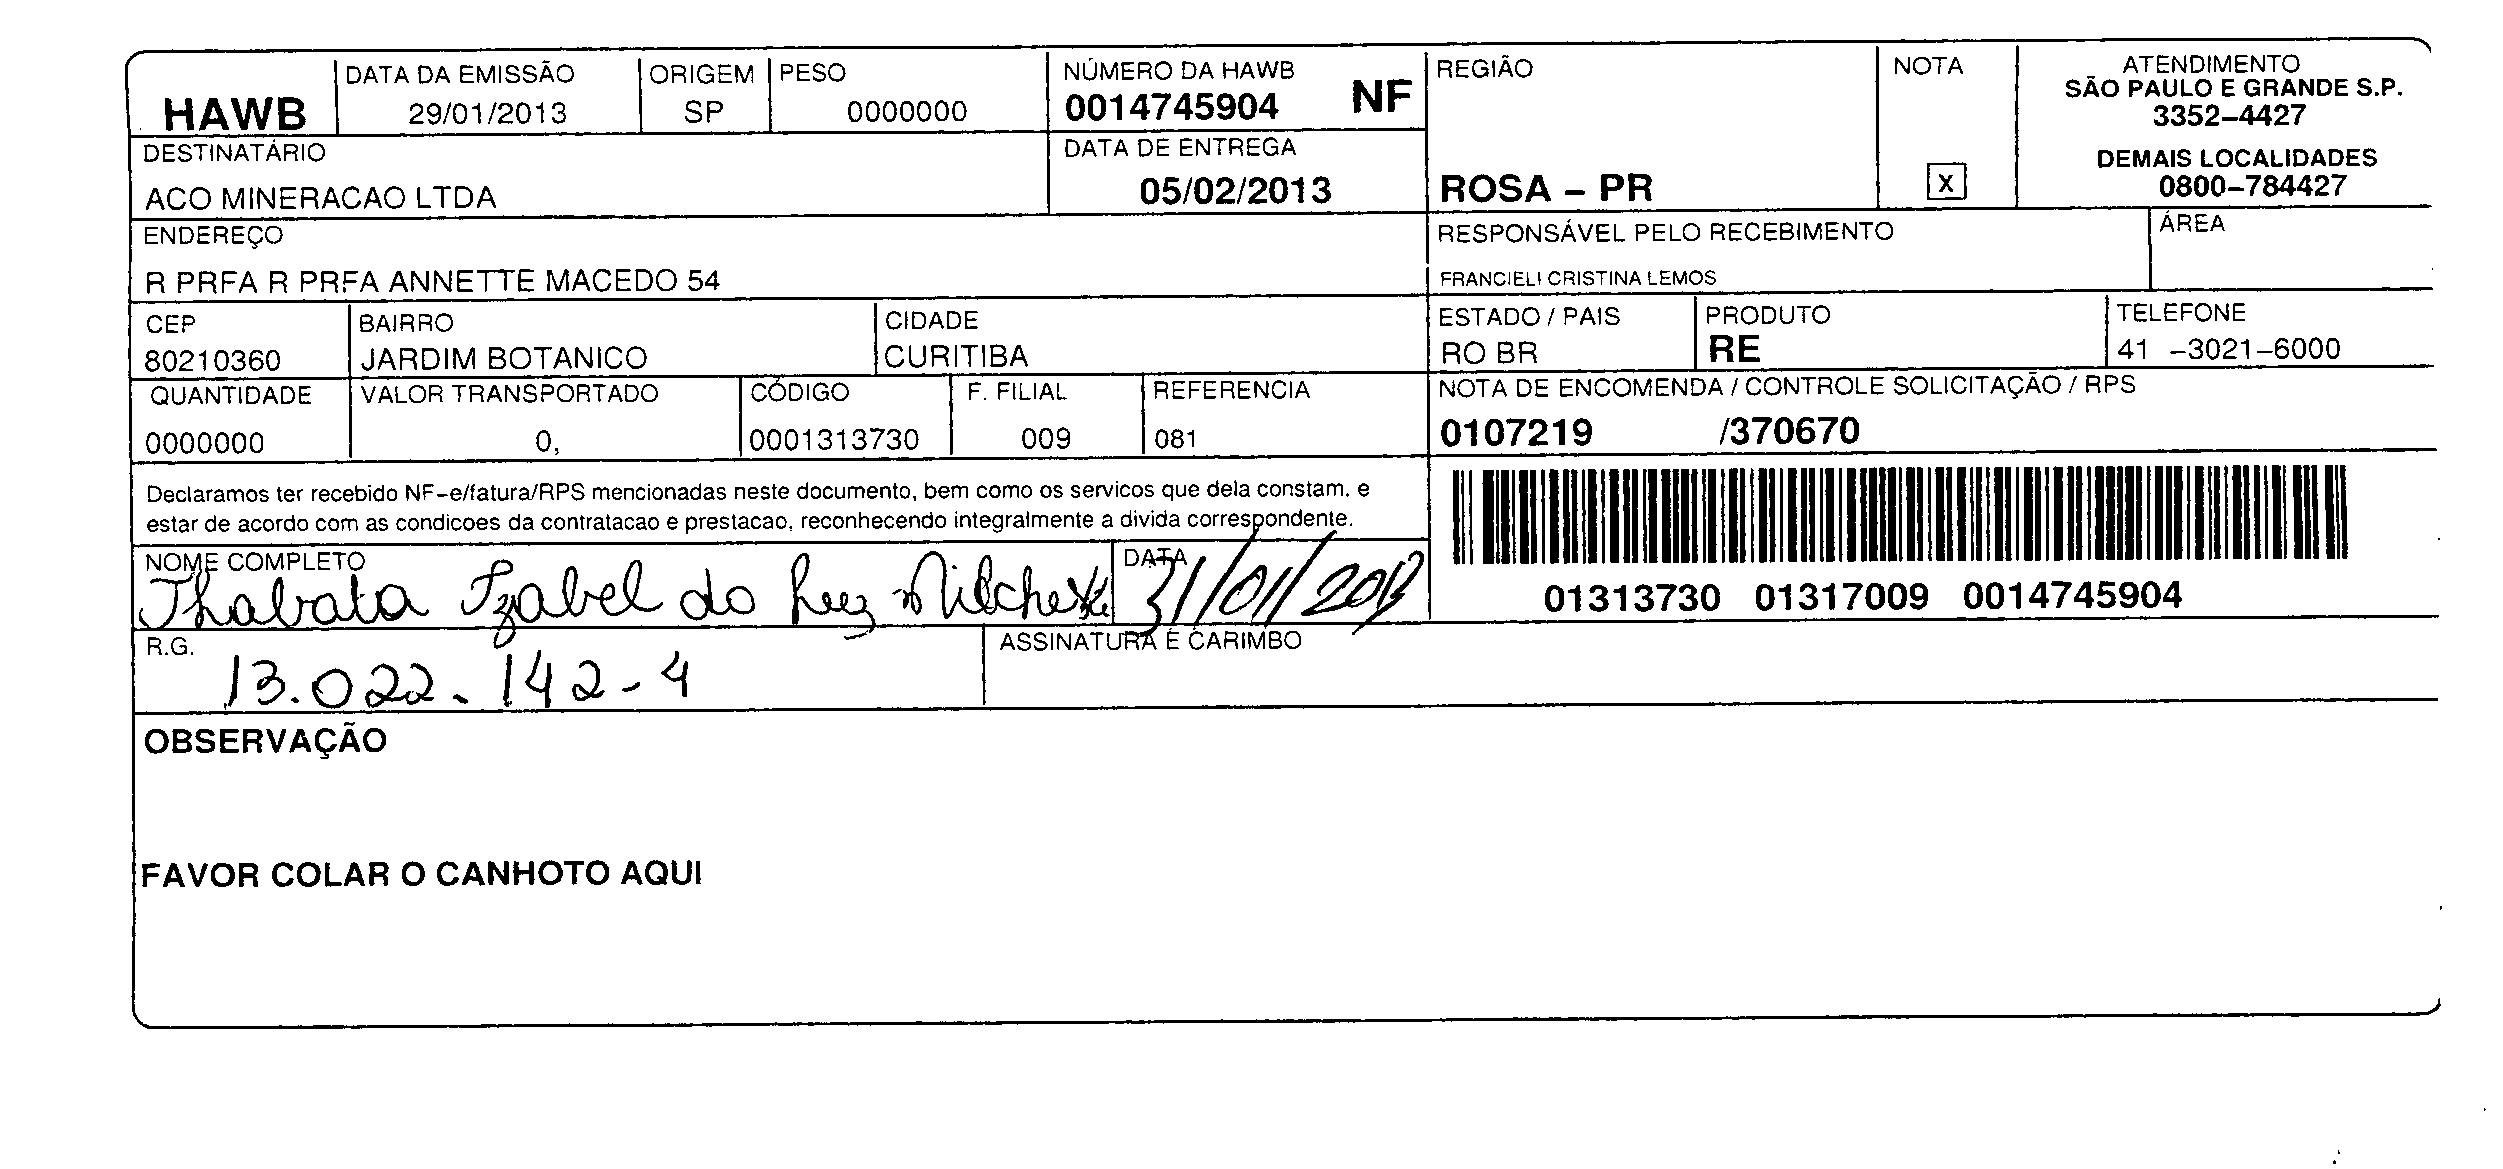 HAWB
DATA DA EMISSÃO
29/01/2013
ORIGEM
SP
PESO
0000000
NÚMERO DA HAWB
0014745904 NF
REGIÃO
ROSA – PR
NOTA
X
ATENDIMENTO
SÃO PAULO E GRANDE S.P.
3352–4427
DEMAIS LOCALIDADES
0800–784427
DESTINATÁRIO
ACO MINERACAO LTDA
DATA DE ENTREGA
05/02/2013
ENDEREÇO
R PRFA R PRFA ANNETTE MACEDO 54
RESPONSÁVEL PELO RECEBIMENTO
FRANCIELI CRISTINA LEMOS
ÁREA
CEP
80210360
BAIRRO
JARDIM BOTANICO
CIDADE
CURITIBA
ESTADO / PAIS
RO BR
PRODUTO
RE
TELEFONE
41 –3021–6000
QUANTIDADE
0000000
VALOR TRANSPORTADO
0,
CÓDIGO
0001313730
F. FILIAL
009
REFERENCIA
081
NOTA DE ENCOMENDA / CONTROLE SOLICITAÇÃO / RPS
0107219 /370670
Declaramos ter recebido NF–e/fatura/RPS mencionadas neste documento, bem como os servicos que dela constam. e
estar de acordo com as condicoes da contratacao e prestacao, reconhecendo integralmente a divida correspondente.
01313730 01317009 0014745904
NOME COMPLETO
Thabata Izabel do
DATA
31/01/2013
R.G.
13.022.142-4
ASSINATURA E CARIMBO
OBSERVAÇÃO
FAVOR COLAR O CANHOTO AQUI